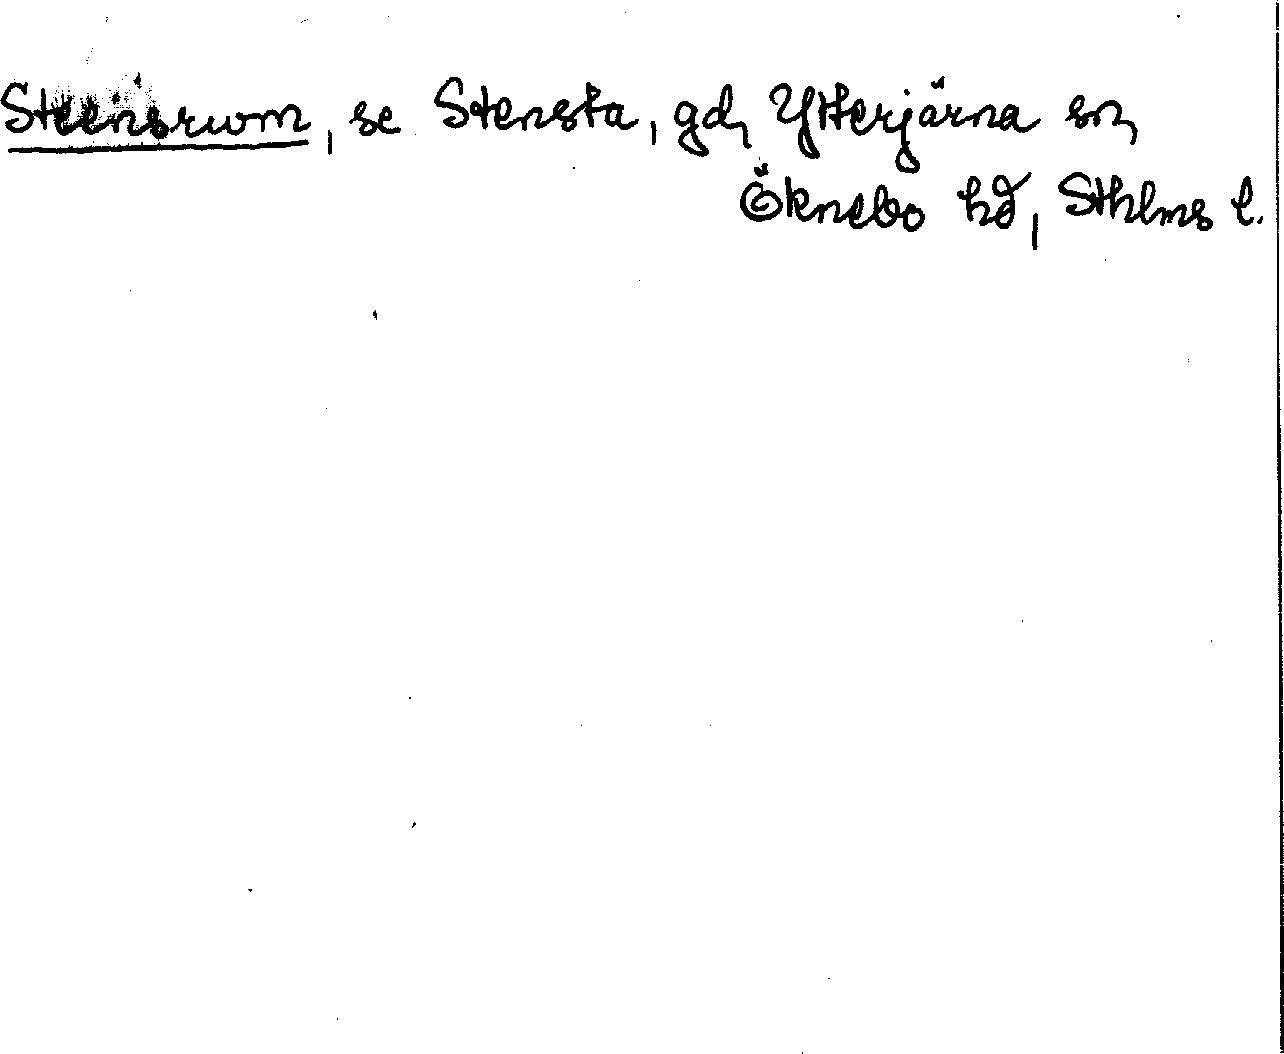 Steensrwm, se Stensta, gd, Ytterjärna sn,
Öknebo hd, Sthlms l.